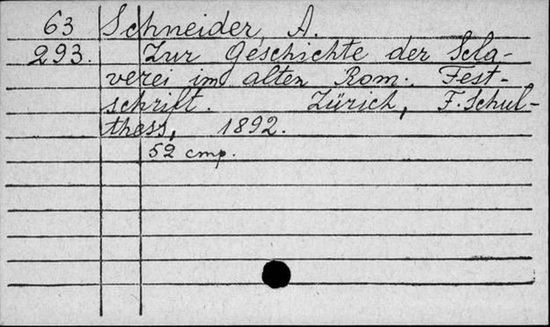 63 Schneider, A.
293. Zur Geschichte der Scla-
verei im alten Rom. Fest-
schrift. Zürich, F. Schul-
thess, 1892.
52 стр.